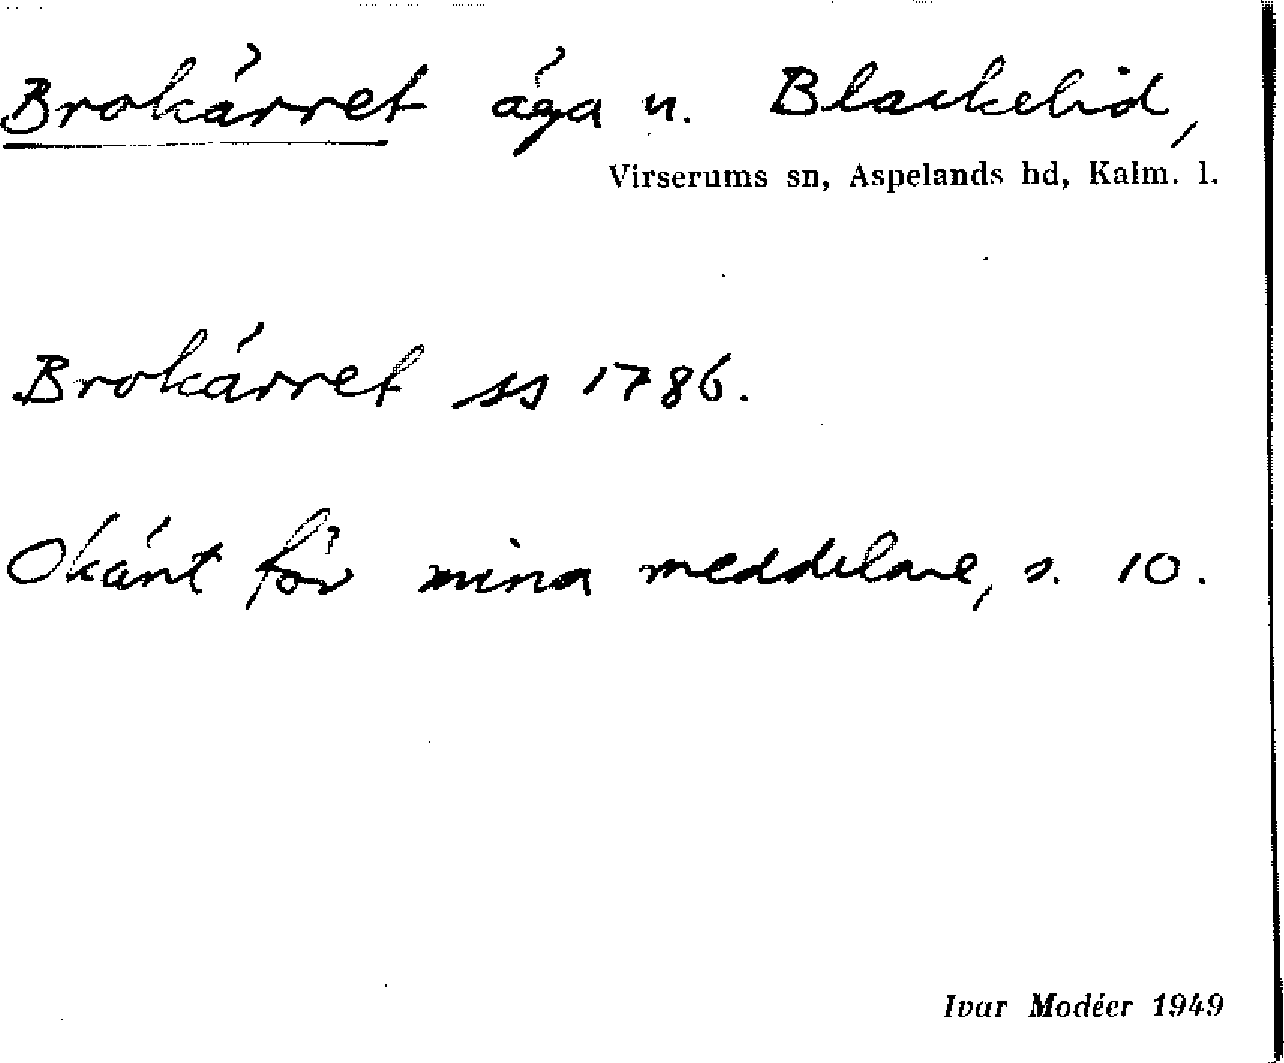 Brokärret äga u. Blackelid,
Virserums sn, Aspelands hd, Kalm. l.
Brokärret ss 1786.
Okänt för mina meddelare, s. 10.
Ivar Modéer 1949